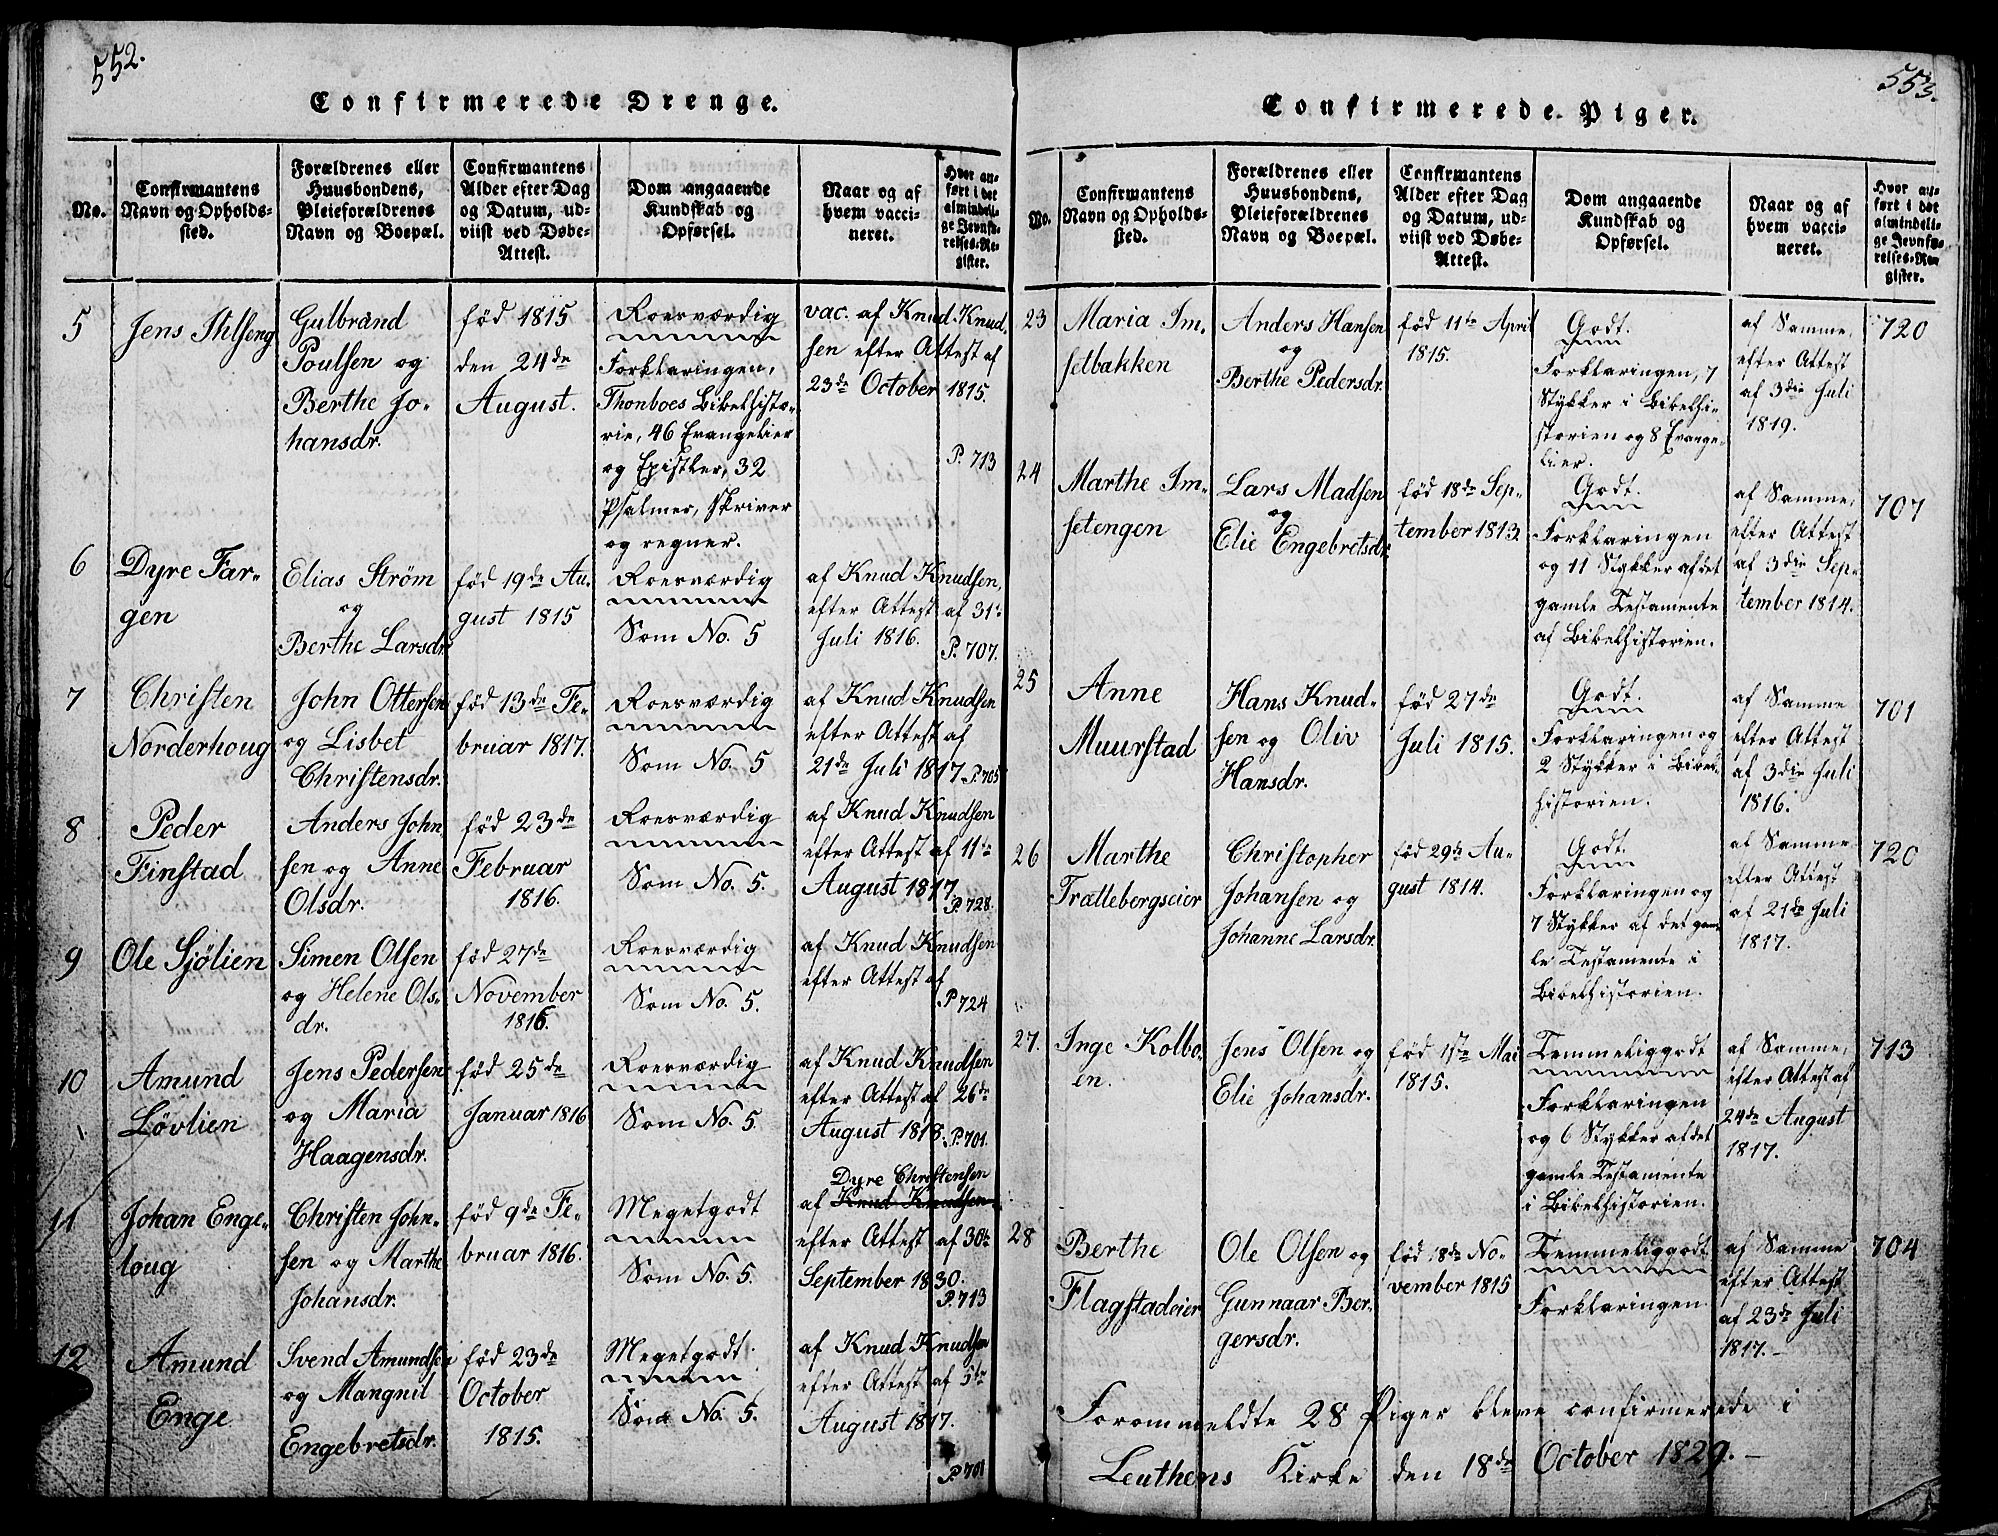 552.
Confirmerede Drenge.
No.
Confirmantens
Navn og Opholds-
sted.
Forældrenes eller
Huusbondens,
Pleieforældrenes
Navn og Boepæl.
Confirmantens
Alder efter Dag
og Datum, ud-
viist ved Døbe-
Attest.
Dom angaaende
Kundskab og
Opførsel.
Naar og af
hvem vacci-
neret.
Hvor an-
ført i det
almindeli-
ge Jevnfø-
relses-Re-
gister.
5
Jens Stilseng
Gulbrand
Poulsen og
Berthe Jo-
hansdr.
fød 1815
den 24de
August.
Roesværdig
Forklaringen,
Thonboes Bibelhisto-
rie, 46 Evangelier
og Epistler, 32
Psalmer, skriver
og regner.
vac. af Knud Knud-
sen efter Attest af
23de October 1815.
P. 713
6
Dyre Far-
gen
Elias Strøm
og
Berthe Larsdr.
fød 19de Au-
gust 1815
Roesværdig
Som No. 5
af Knud Knudsen,
efter Attest af 31te
Juli 1816.
P. 707.
7
Christen
Norderhoug
John Ottersen
og Lisbet
Christensdr.
fød 13de Fe-
bruar 1817.
Roesværdig
Som No. 5
af Knud Knudsen
efter Attest af
21de Juli 1817. P. 705
8
Peder
Finstad
Anders John-
sen og Anne
Olsdr.
fød 23de
Februar
1816.
Roesværdig
Som No. 5.
af Knud Knudsen
efter Attest af 11te
August 1817.
P. 728.
9
Ole Sjølien
Simen Olsen
og Helene Ols-
dr.
fød 27de
November
1816.
Roesværdig
Som No. 5.
af Knud Knudsen
efter Attest af
P. 724
10
Amund
Løvlien
Jens Pedersen
og Maria
Haagensdr.
fød 25de
Januar 1816
Roesværdig
Som No. 5.
af Knud Knudsen
efter Attest af 26de
August 1818.
P. 701.
11
Johan Enge-
loug
Christen John-
sen og Marthe
Johansdr.
fød 9de Fe-
bruar 1816.
Megetgodt
Som No. 5.
Dyre Christensen
af Knud Knudsen
efter Attest af 30te
September 1830.
P. 713
12
Amund
Enge
Svend Amundsen
og Mangnil
Engebretsdr.
fød 23de
October
1815.
Megetgodt
Som No. 5.
af Knud Knudsen
efter Attest af 5te
August 1817.
P. 701
553.
Confirmerede Piger.
No.
Confirmantens
Navn og Opholds-
sted.
Forældrenes eller
Huusbondens,
Pleieforældrenes
Navn og Boepæl.
Confirmantens
Alder efter Dag
og Datum, ud-
viist ved Døbe-
Attest.
Dom angaaende
Kundskab og
Opførsel.
Naar og af
hvem vacci-
neret.
Hvor an-
ført i det
almindeli-
ge Jevnfø-
relses-Re-
gister.
23
Maria Im-
setbakken
Anders Hansen
og
Berthe Pedersdr.
fød 11te April
1815.
Godt.
Forklaringen, 7
Stykker i Bibelhi-
storien og 8 Evange-
lier.
af Samme,
efter Attest
af 3die Juli
1819.
720
24
Marthe Im-
setengen
Lars Madsen
og
Elie Engebretsdr.
fød 18de Sep-
tember 1813.
Godt.
Forklaringen
og 11 Stykker af det
gamle Testamente
af Bibelhistorien.
af Samme,
efter Attest
af 3die Sep-
tember 1814.
707
25
Anne
Muurstad
Hans Knud-
sen og Oliv
Hansdr.
fød 27de
Juli 1815.
Godt.
Forklaringen og
2 Stykker i Bibel-
historien.
af Samme
efter Attest
af 3die Juli
1816.
701
26
Marthe
Trættebergseier
Christopher
Johansen og
Johanne Larsdr.
fød 29de Au-
gust 1814.
Godt.
Forklaringen og
7 Stykker af det gam-
le Testamente i
Bibelhistorien.
af Samme
efter Attest
af 21de Juli
1817.
720
27.
Inge Kolbo-
en.
Jens Olsen og
Elie Johansdr.
fød 1ste Mai
1815.
Temmeliggodt
Forklaringen
og 6 Stykker af det
gamle Testamente
i Bibelhistorien.
af Samme,
efter Attest af
24de August
1817.
713
28
Berthe
Flagstadeier
Ole Olsen og
Gunnaar Ber-
gersdr.
fød 18de No-
vember 1815
Temmeliggodt
Forklaringen.
af Samme
efter Attest
af 23de Juli
1817.-
704
Forommeldte 28 Piger bleve confirmerede i
Leuthens Kirke den 18de October 1829.-